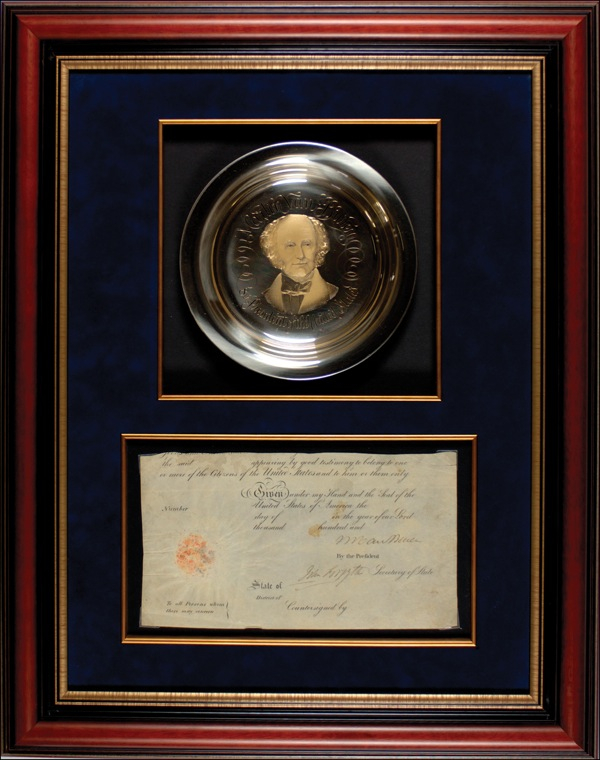 Martin Van Buren
President of the United States
the said appearing by good testimony to belong to one
or more of the Citizens of the United States and to him or them only
Given under my Hand and the Seal of the
United States of America the
Number
day of in the year of our Lord
thousand hundred and
M Van Buren
By the President
John Forsyth Secretary of State
State of
District of
To all Persons whom
these may concern
Countersigned by